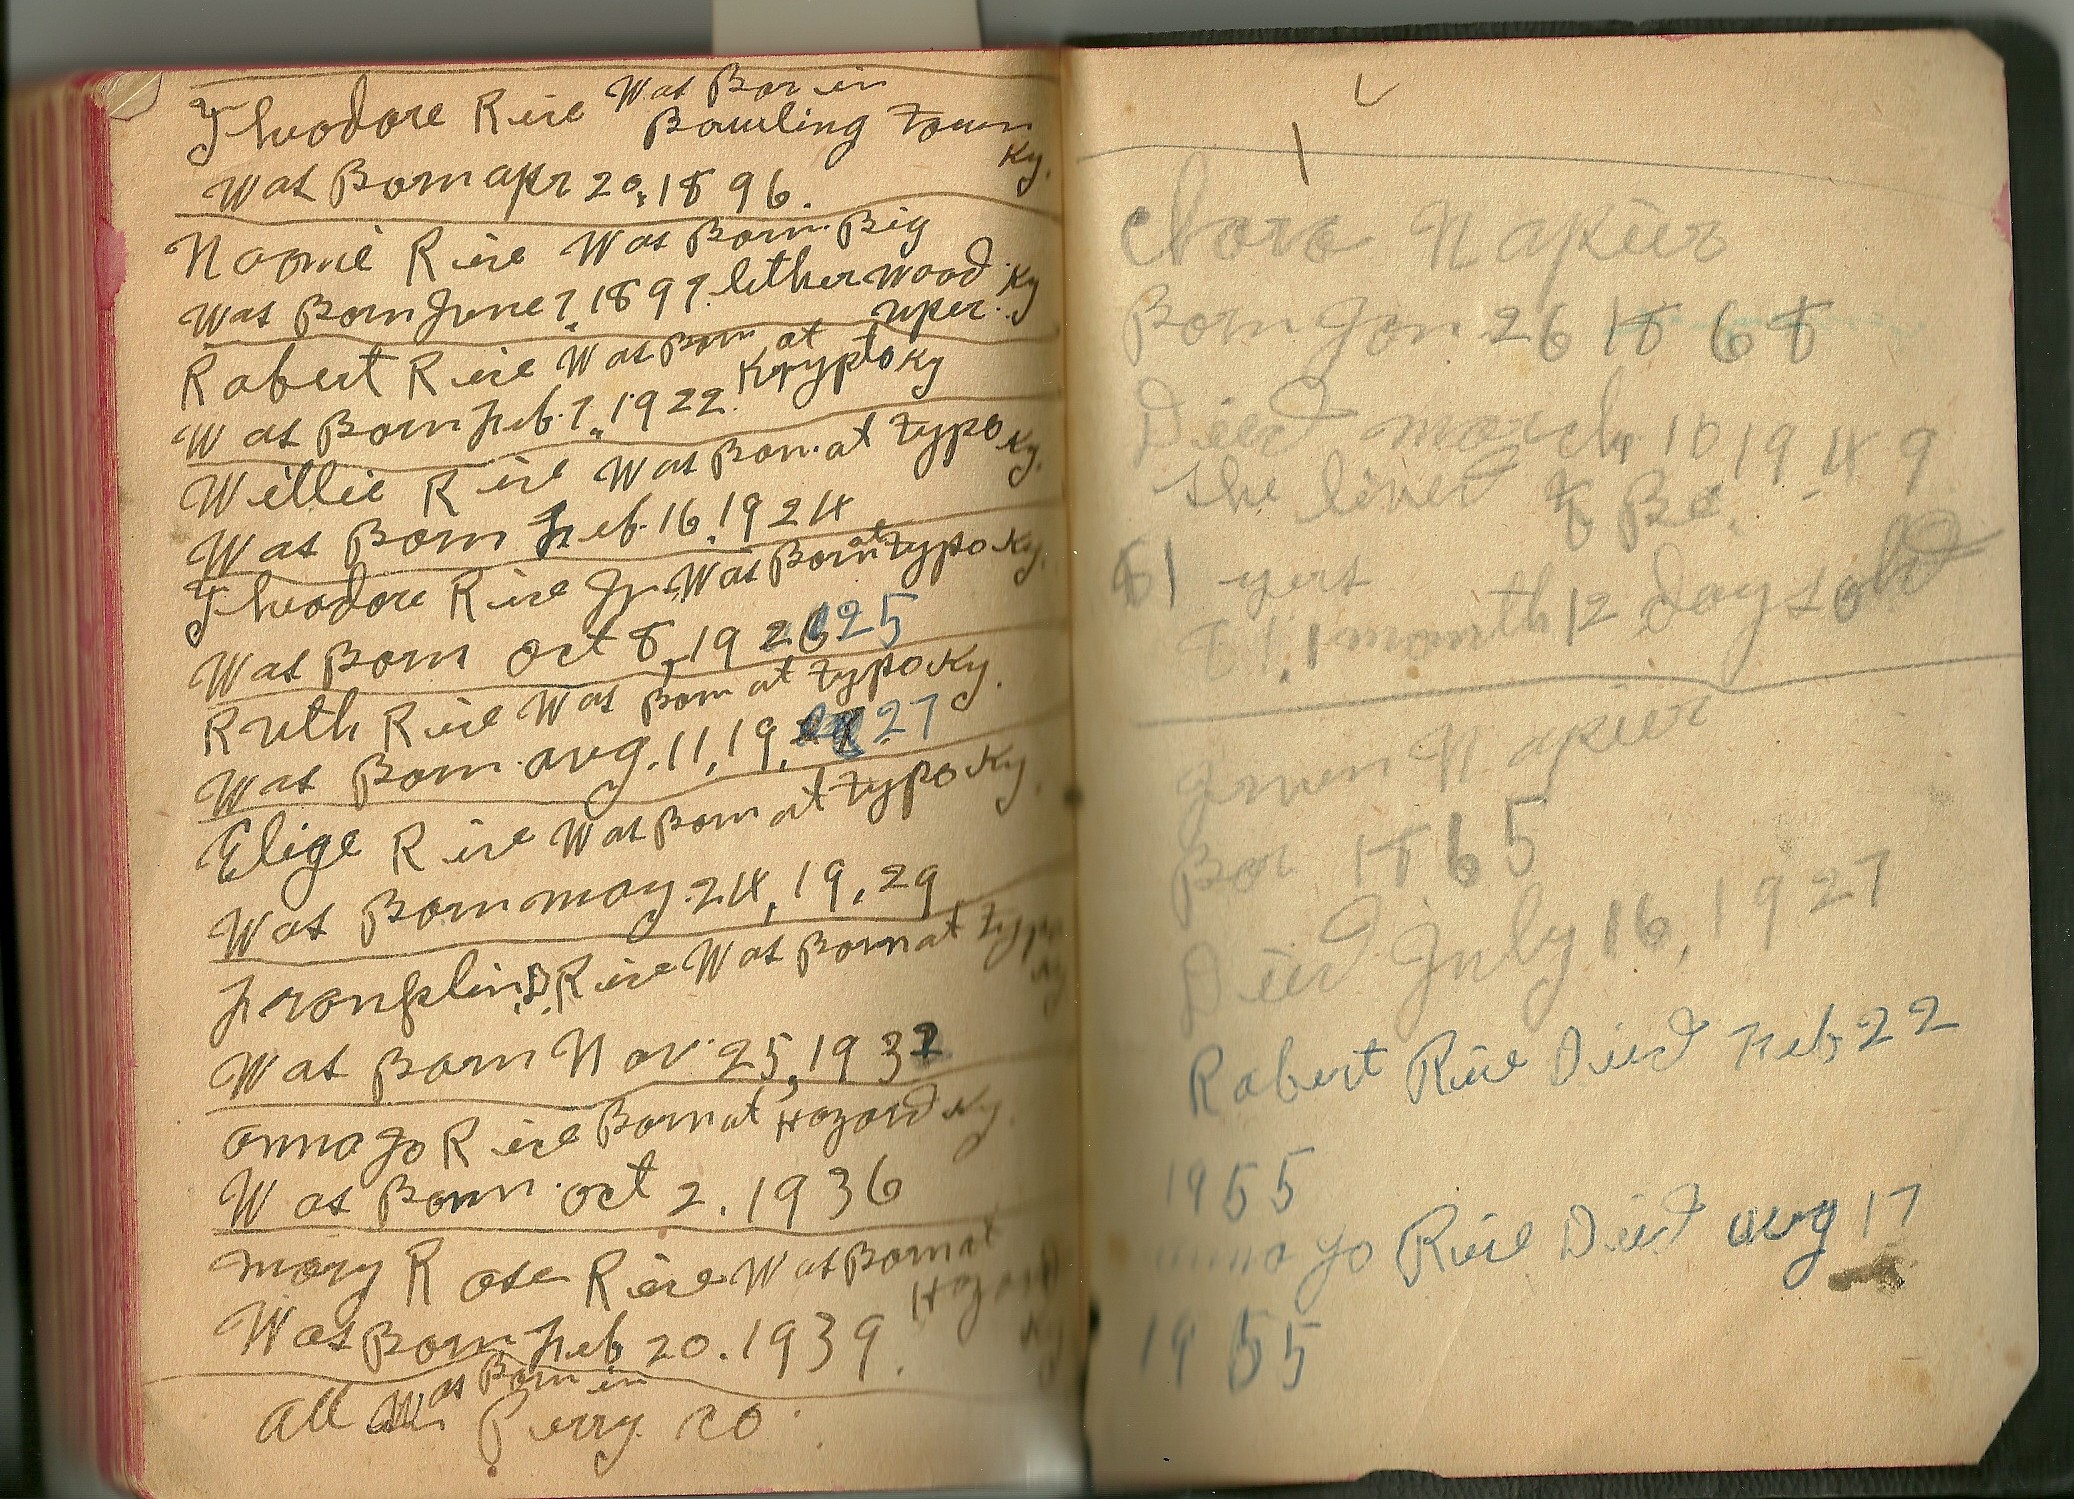 Theodore Rice Was Bor in
Bowling Town
Ky.
Was Born apr 20, 1896.
Naomie Rice Was Born Big
Was Born June 7, 1897. letherwood Ky
uper.
Robert Rice Was Born at
Krypto Ky
Was Born Feb. 7, 1922.
Willie Rice Was Born at typo Ky.
Was Born Feb. 16, 1924
Theodore Rice Jr Was Born at typo Ky.
Was Born oct 8, 19 25
Ruth Rice Was Born at typo Ky.
Was Born avg. 11, 19, 27
Elige Rice Was Born at typo Ky.
Was Born may 24, 19, 29
Franklin D. Rice Was Born at typo
Ky
Was Born Nov. 25, 1932
anna Jo Rice Born at Hazard Ky.
Was Born oct 2. 1936
mary Rose Rice Was Born at
Hazard
Ky
Was Born Feb 20. 1939.
All Was Born in
Perry co.
1
Clora Napier
Born Jan 26 1868
Died march 10 1949
she lived to Be.
81 yers
81, 1 month 12 days old
Napier
Bor 1865
Died July 16, 1927
Robert Rice Died Feb 22
1955
anna Jo Rice Died aug 17
1955